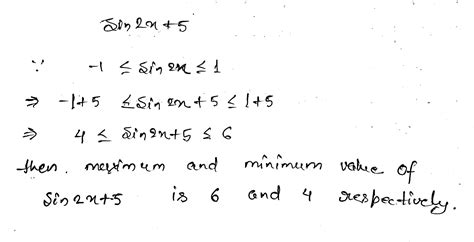 Sin 2x + 5
∵ -1 ≤ Sin 2x ≤ 1
⇒ -1+5 ≤ Sin 2x + 5 ≤ 1+5
⇒ 4 ≤ Sin 2x+5 ≤ 6
then, maximum and minimum value of
Sin 2x+5 is 6 and 4 respectively.